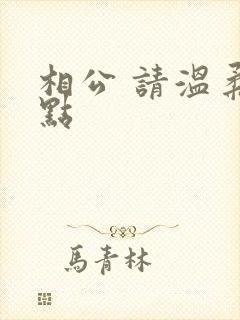 相公 請溫柔
點
馬青林